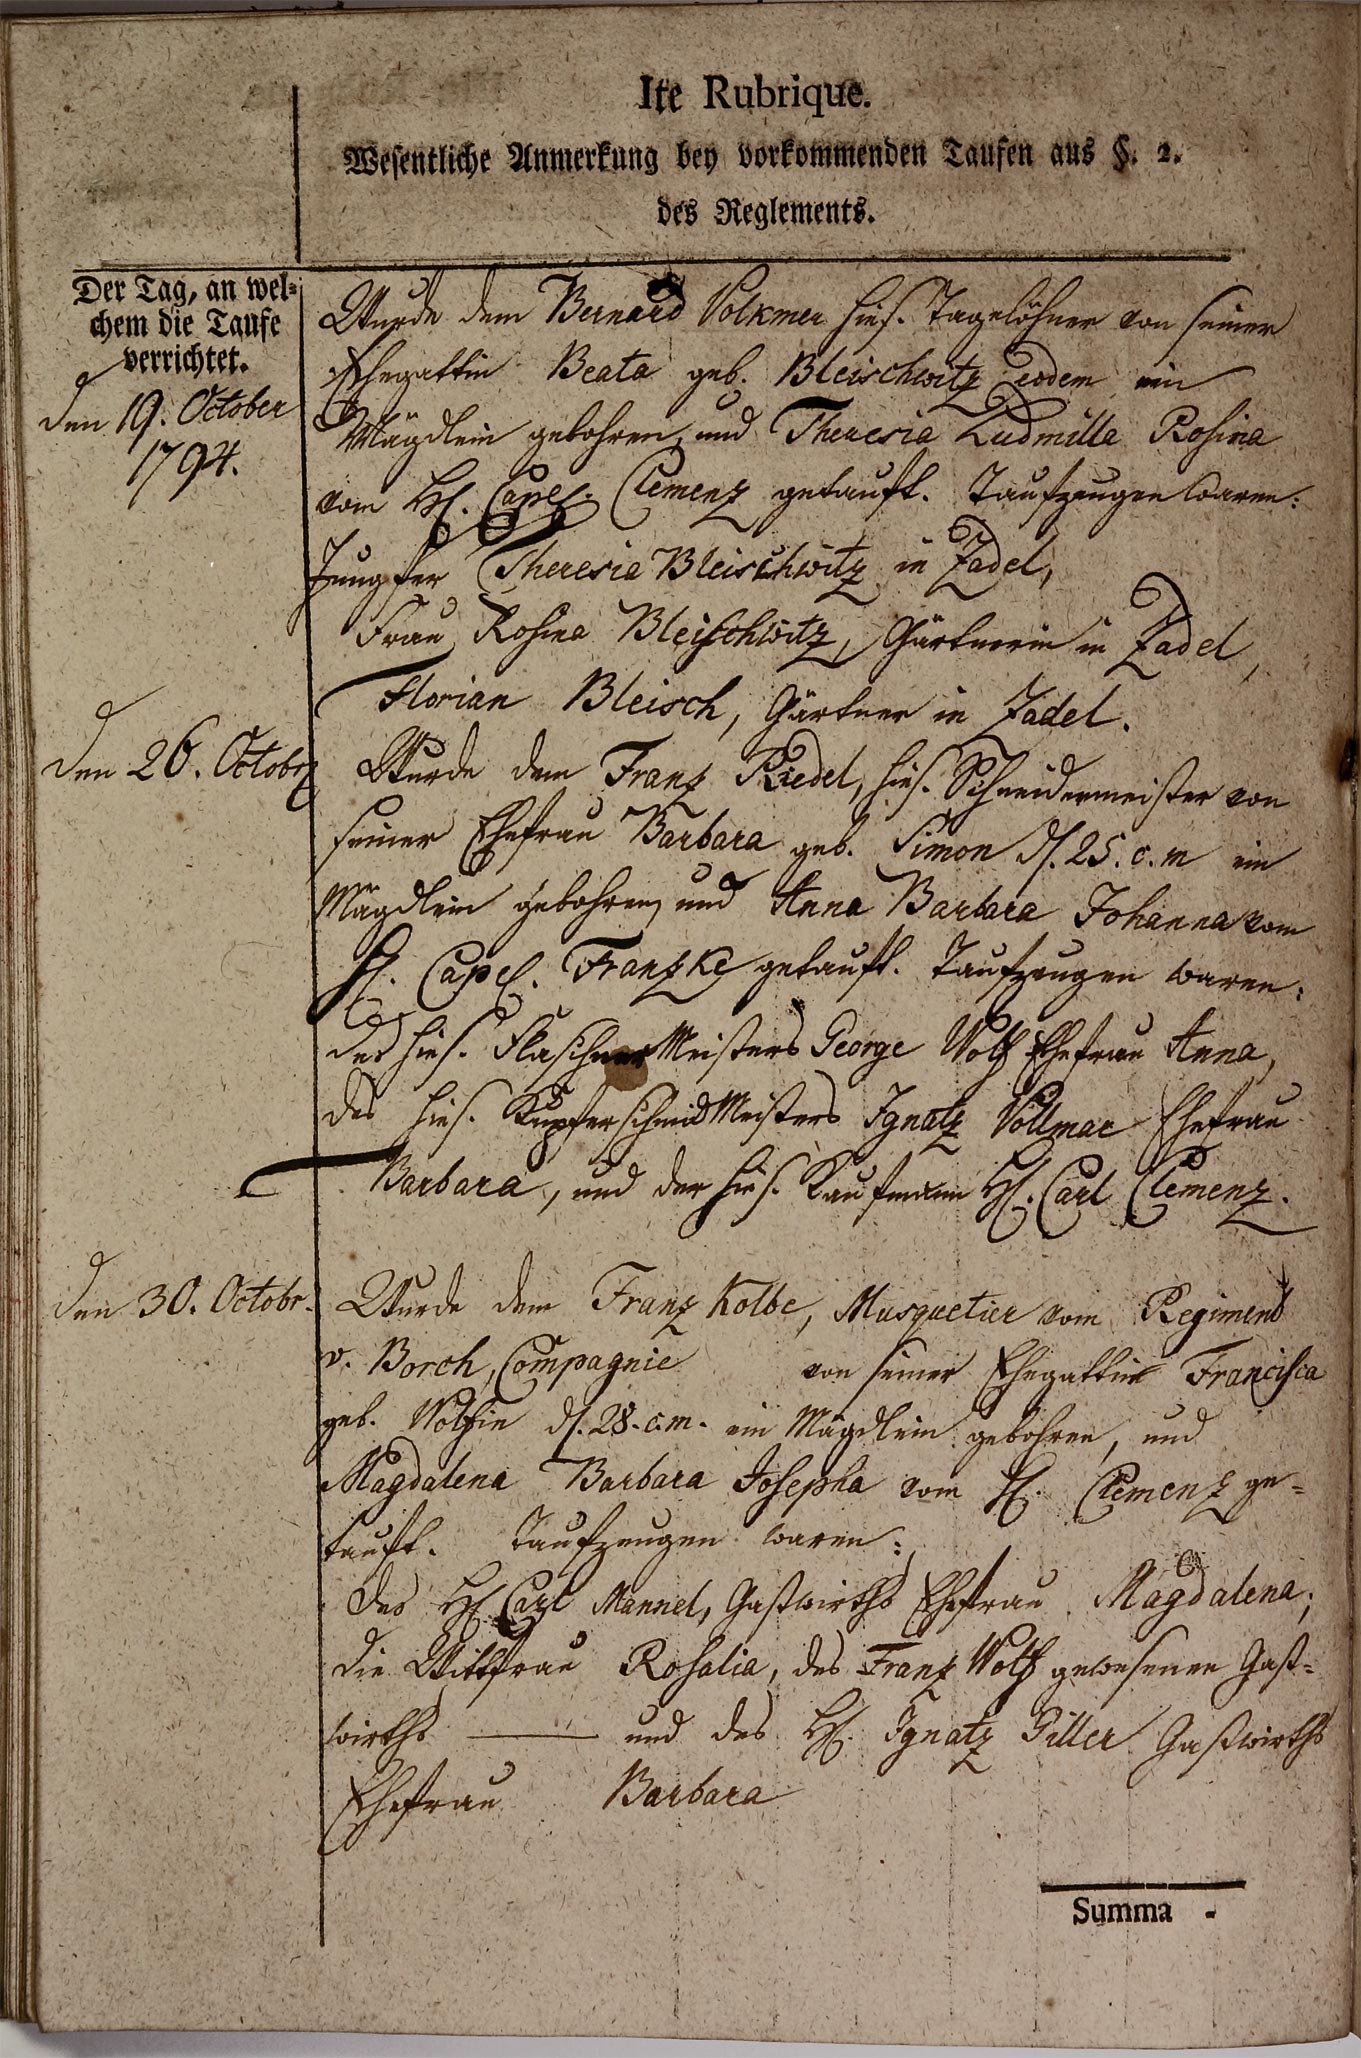 Ite Rubrique.
Wesentliche Anmerkung bey vorkommenden Taufen aus §. 2.
des Reglements.
Der Tag, an wel=
chem die Taufe
verrichtet.
den 19. October
1794.
Wurde dem Bernard Volkmer hies. Tagelöhner von seiner
Ehegattin Beata geb. Bleischwitz eodem ein
Mägdlein gebohren, und Theresia Ludmilla Rosina
vom H. Capel. Clemenz getauft. Taufzeugen waren:
Jungfer Theresia Bleischwitz in Zadel,
Frau Rosina Bleischwitz, Gärtnerin in Zadel,
Florian Bleisch, Gärtner in Zadel.
den 26. Octobr
Wurde dem Franz Riedel, hies. Schneidermeister von
seiner Ehefrau Barbara geb. Simon d. 25. c. m ein
Mägdlein gebohren, und Anna Barbara Johanna vom
H. Capel. Franzke getauft. Taufzeugen waren:
des hies. Flaschner Meisters George Wolf Ehefrau Anna,
des hies. Kupferschmid Meisters Ignatz Vollmar Ehefrau
Barbara, und der hies. Kaufmann H. Carl Clemenz.
den 30. Octobr.
Wurde dem Franz Kolbe, Musquetier vom Regiment
v. Borch, Compagnie von seiner Ehegattin Francisca
geb. Wolfin d. 28. c. m. ein Mägdlein gebohren, und
Magdalena Barbara Josepha vom H. Clemenz ge=
tauft. Taufzeugen waren:
des H. Carl Mannel, Gastwirths Ehefrau Magdalena;
die Wittfrau Rosalia, des Franz Wolf gewesenen Gast=
wirths ——— und des H. Ignatz Giller Gastwirths
Ehefrau Barbara
Summa -